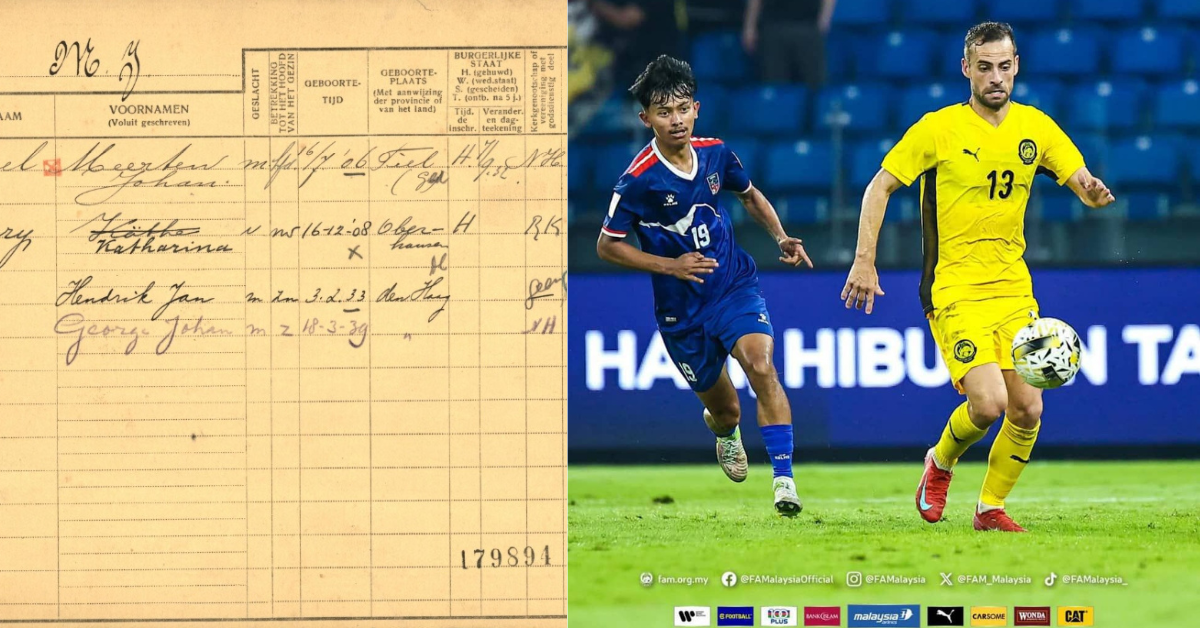 M. J.
AAM
VOORNAMEN
(Voluit geschreven)
GESLACHT
BETREKKING
TOT HET HOOFD
VAN HET GEZIN
GEBOORTE-
TIJD
GEBOORTE-
PLAATS
(Met aanwijzing
der provincie of
van het land)
BURGERLIJKE
STAAT
H. (gehuwd)
W. (wed.staat)
S. (gescheiden)
T. (ontb. na 5 j.)
Tijd.
de
inschr.
Verander.
en dag-
teekening
Kerkgenootschap of
vereeniging met
godsdienstig doel
el Meerten m 16/7 '06 Tiel H N.H.
Johan. (Gld
ry Käthe v 16-12-'08 Ober- H R K
Katharina x hausen
Hendrik Jan m zn 3.2.33 den Haag
George Johan m z 18-3-39 " NH
179894
19
19
13
HIBU
TA
fam.org.my @FAMalaysiaOfficial @FAMalaysia @FAM_Malaysia @FAMalaysia_
EFOOTBALL 100 PLUS BANK ISLAM malaysia airlines CARSOME WONDA CAT